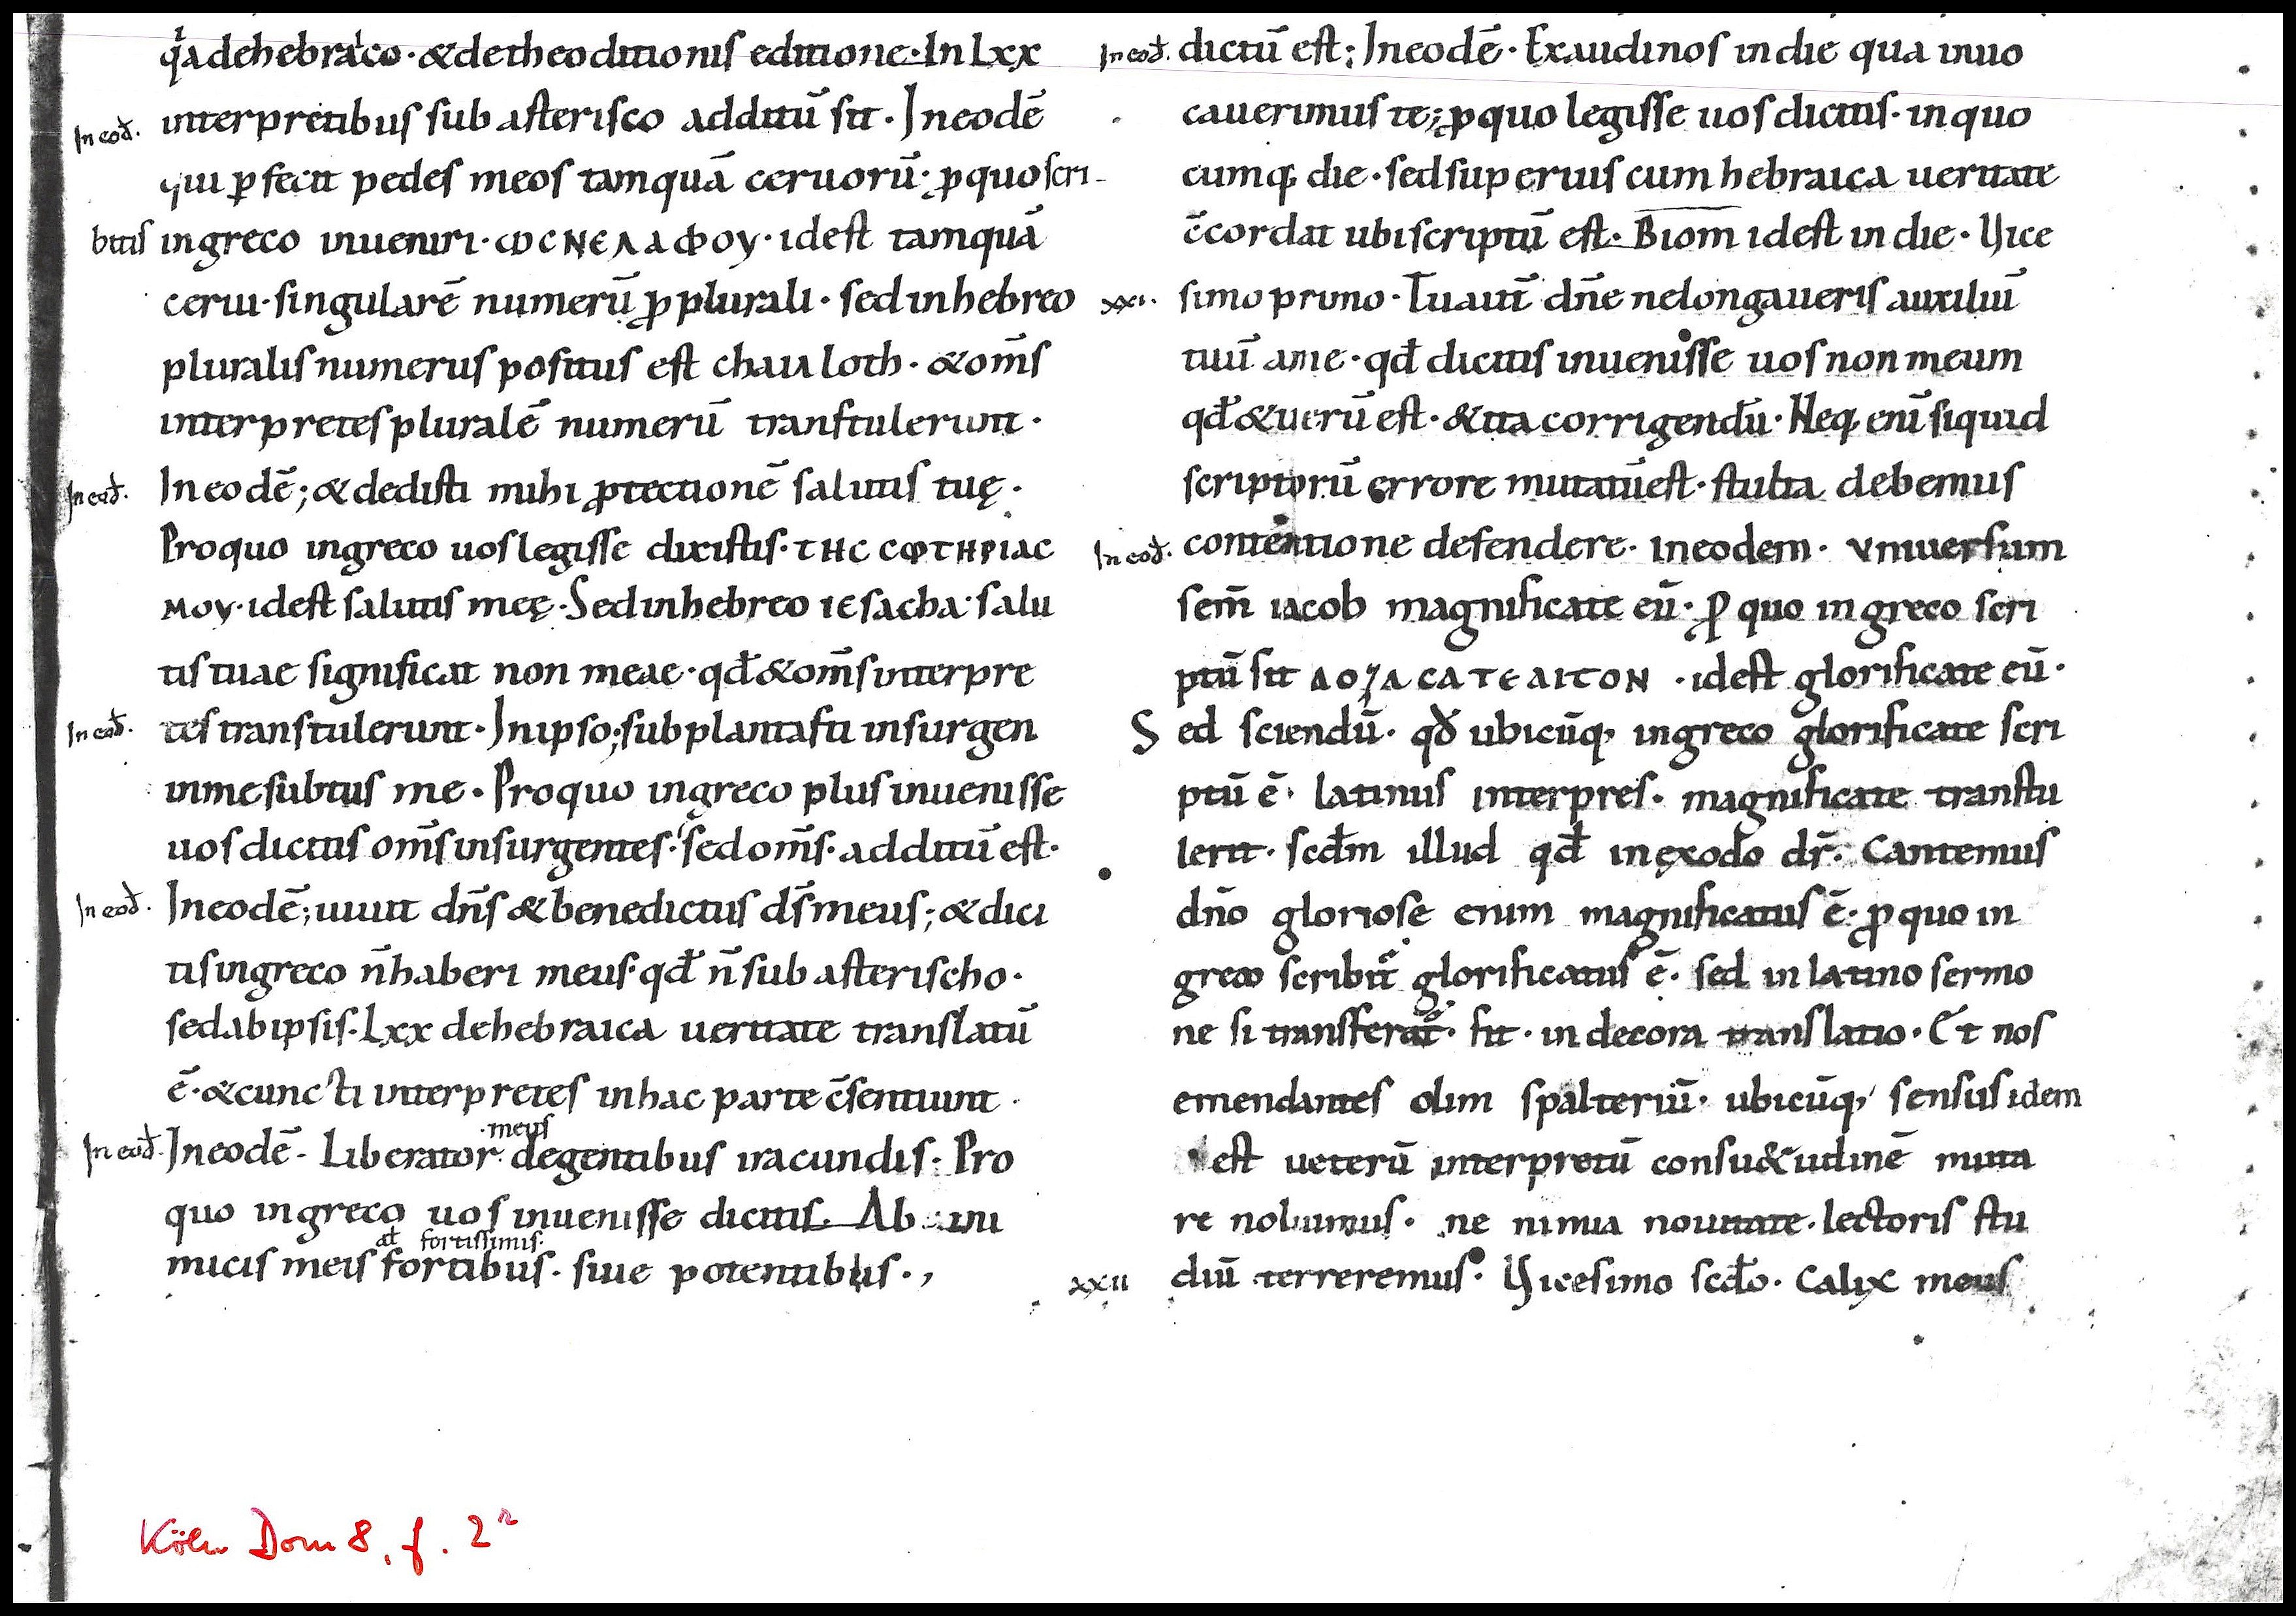 q̇a dehebraico · & detheoditionis editione · In Lxx
In eođ. interpretibus sub asterisco additū sit · In eodē
qui ꝑfecit pedes meos tamquā ceruorū · ꝓ quo scri
bitis in greco inueniri · ωϲ ΝЄΛΑΦΟΥ · id est tamquā
cerui · singularē numerū ꝓ plurali · sed in hebreo
pluralis numerus positus est chaialoth · & om̄s
interpretes pluralē numerū transtulerunt ·
In eođ. In eodē; & dedisti mihi ꝓtectionē salutis tuę ·
Pro quo in greco uos legisse dixistis · ΤΗϹ ϹΦΤΗΡΙΑϹ
ΜΟΥ · id est salutis meę · Sed in hebreo IЄsacha · salu
tis tuae significat non meae · qđ & om̄s interpre
In eođ. tes transtulerunt · In ipso; subplantasti insurgen
in me subtus me · Pro quo in greco plus inuenisse
uos dicitis om̄s insurgentes · sed om̄s · additū est ·
In eođ. In eodē; uiuit dn̄s & benedictus ds̄ meus; & dici
tis in greco n̄ haberi meus · qđ n̄ sub asterischo ·
sed ab ipsis · Lxx de hebraica ueritate translatū
ē · & cuncti interpretes in hac parte c̄sentiunt ·
· meus
In eođ. In eodē · Liberator degentibus iracundis · Pro
quo in greco uos inuenisse dicitis · Ab ini
ał fortissimis ·
micis meis fortibus · siue potentibus · ,
In eođ. dictū est; In eodē · Exaudi nos in die qua inuo
cauerimus te; ꝓ quo legisse uos dicitis · in quo
cumq; die · sed superius cum hebraica ueritate
c̄cordat ubi scriptū est · Biom id est in die · Uice
xxi. simo primo · Tu aut̄ dn̄e ne longaueris auxiliū
tuū a me · qđ dicitis inuenisse uos non meum
qđ & uerū est · & ita corrigendū · Neq; enī si quid
scriptorū errore mutatū est · stulta debemus
In eođ. contentione defendere · in eodem · vniuersum
sem̄ iacob magnificate eū · ꝓ quo in greco scri
ptū sit ΔΟΞΑϹΑΤЄ ΑΙΤΟΝ · id est glorificate eū ·
Sed sciendū · qđ ubicūq; in greco glorificate scri
ptū ē · latinus interpres · magnificate transtu
lerit · scđm illud qđ in ęxođo dr̄ · Cantemus
dn̄o gloriose enim magnificatus ē · ꝓ quo in
greco scribit̄ glorificatus ē · sed in latino sermo
ne si transferat̄ · fit · in decora translatio · Et nos
emendantes olim spalteriū · ubicūq; sensus idem
est ueterū interpretū consu&udinē muta
re noluimus · ne nimia nouitate · lectoris stu
xxii diū terreremus · Uicesimo scđo · Calix meus
Köln Dom 8, f. 2ʳ